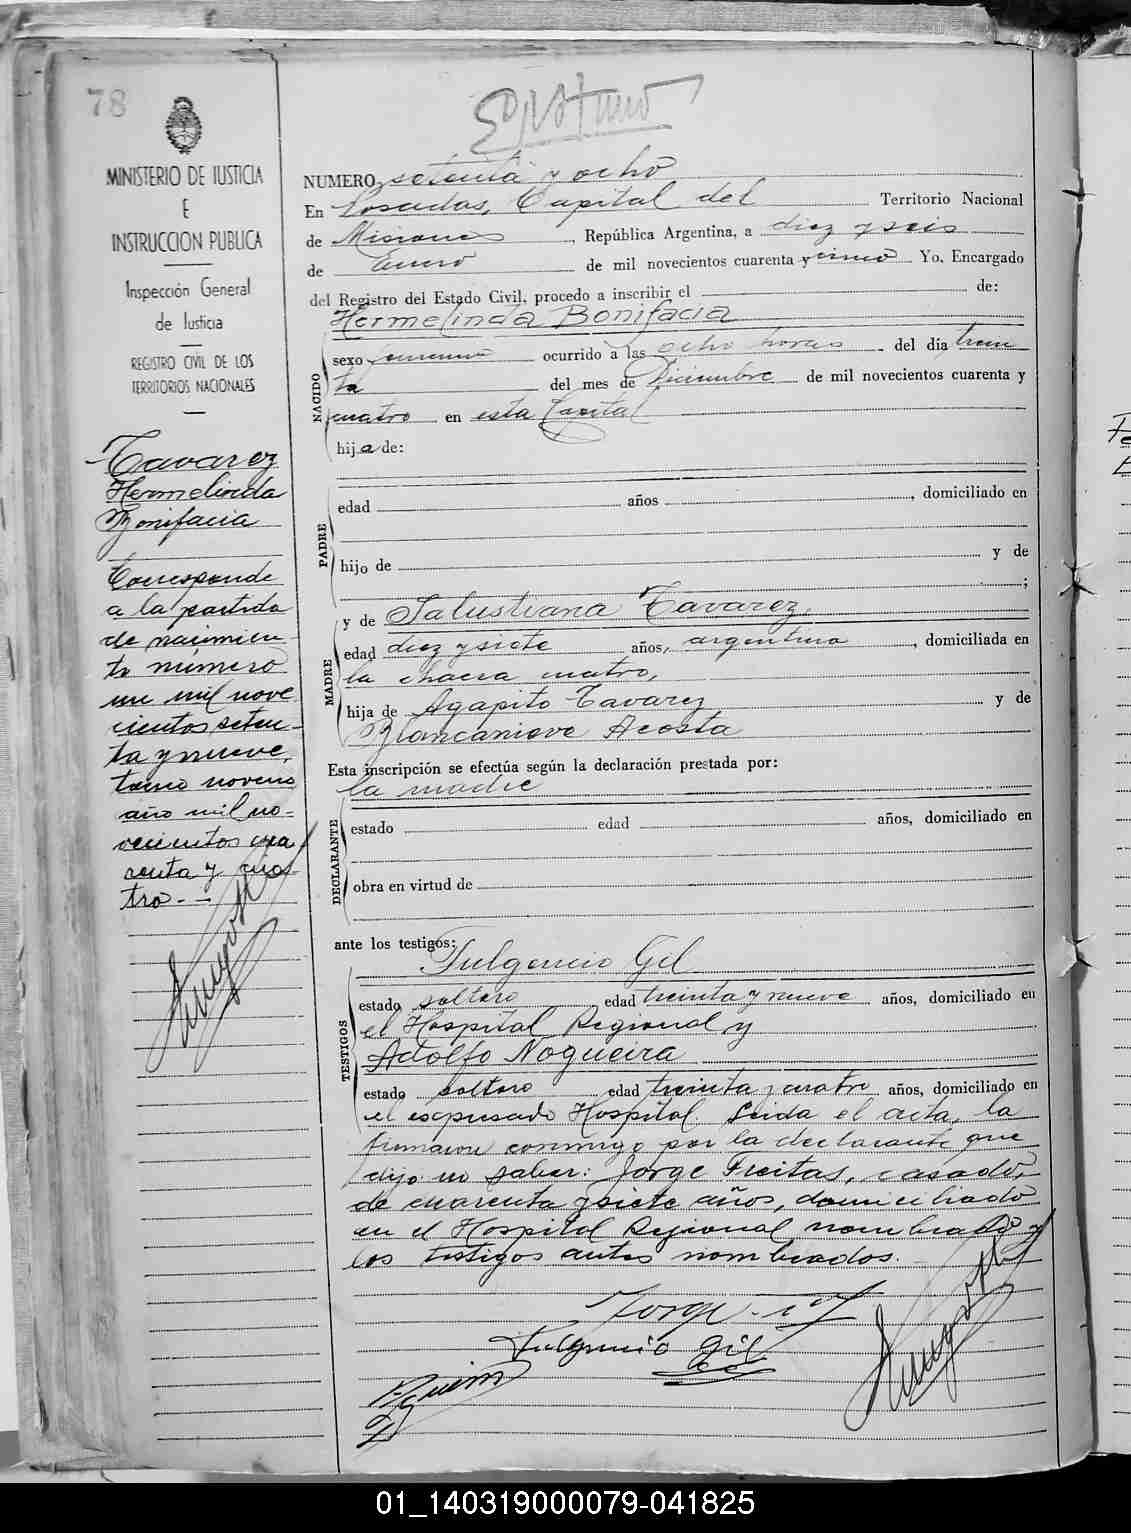 78
MINISTERIO DE JUSTICIA
E
INSTRUCCION PUBLICA
Inspección General
de Justicia
REGISTRO CIVIL DE LOS
TERRITORIOS NACIONALES
Tavarez
Hermelinda
Bonifacia
Corresponde
a la partida
de nacimien
to número
un mil nove
cientos seten-
ta y nueve,
tomo noveno
año mil no=
vecientos cua
renta y cua
tro.-
NUMERO setenta y ocho
En Posadas, Capital del Territorio Nacional
de Misiones, República Argentina, a diez y seis
de Enero de mil novecientos cuarenta y cinco Yo, Encargado
del Registro del Estado Civil, procedo a inscribir el de:
Hermelinda Bonifacia
NACIDO
sexo femenino ocurrido a las ocho horas del día trein
ta del mes de Diciembre de mil novecientos cuarenta y
cuatro en esta Capital
hija de:
PADRE
edad años, domiciliado en
hijo de y de
;
MADRE
y de Salustiana Tavarez,
edad diez y siete años, argentina, domiciliada en
la chacra cuatro,
hija de Agapito Tavarez y de
Blancanieve Acosta
Esta inscripción se efectúa según la declaración prestada por:
la madre
DECLARANTE
estado edad años, domiciliado en
obra en virtud de
ante los testigos:
Fulgencio Gil
TESTIGOS
estado soltero edad treinta y nueve años, domiciliado en
el Hospital Regional y
Adolfo Nogueira
estado soltero edad treinta y cuatro años, domiciliado en
el expresado Hospital. Leida el acta, la
firmaron conmigo por la declarante que
dijo no saber: Jorge Freitas, casado,
de cuarenta y siete años, domiciliado
en el Hospital Regional nombrado y
los testigos antes nombrados.
Jorge
Fulgencio Gil
01_140319000079-041825